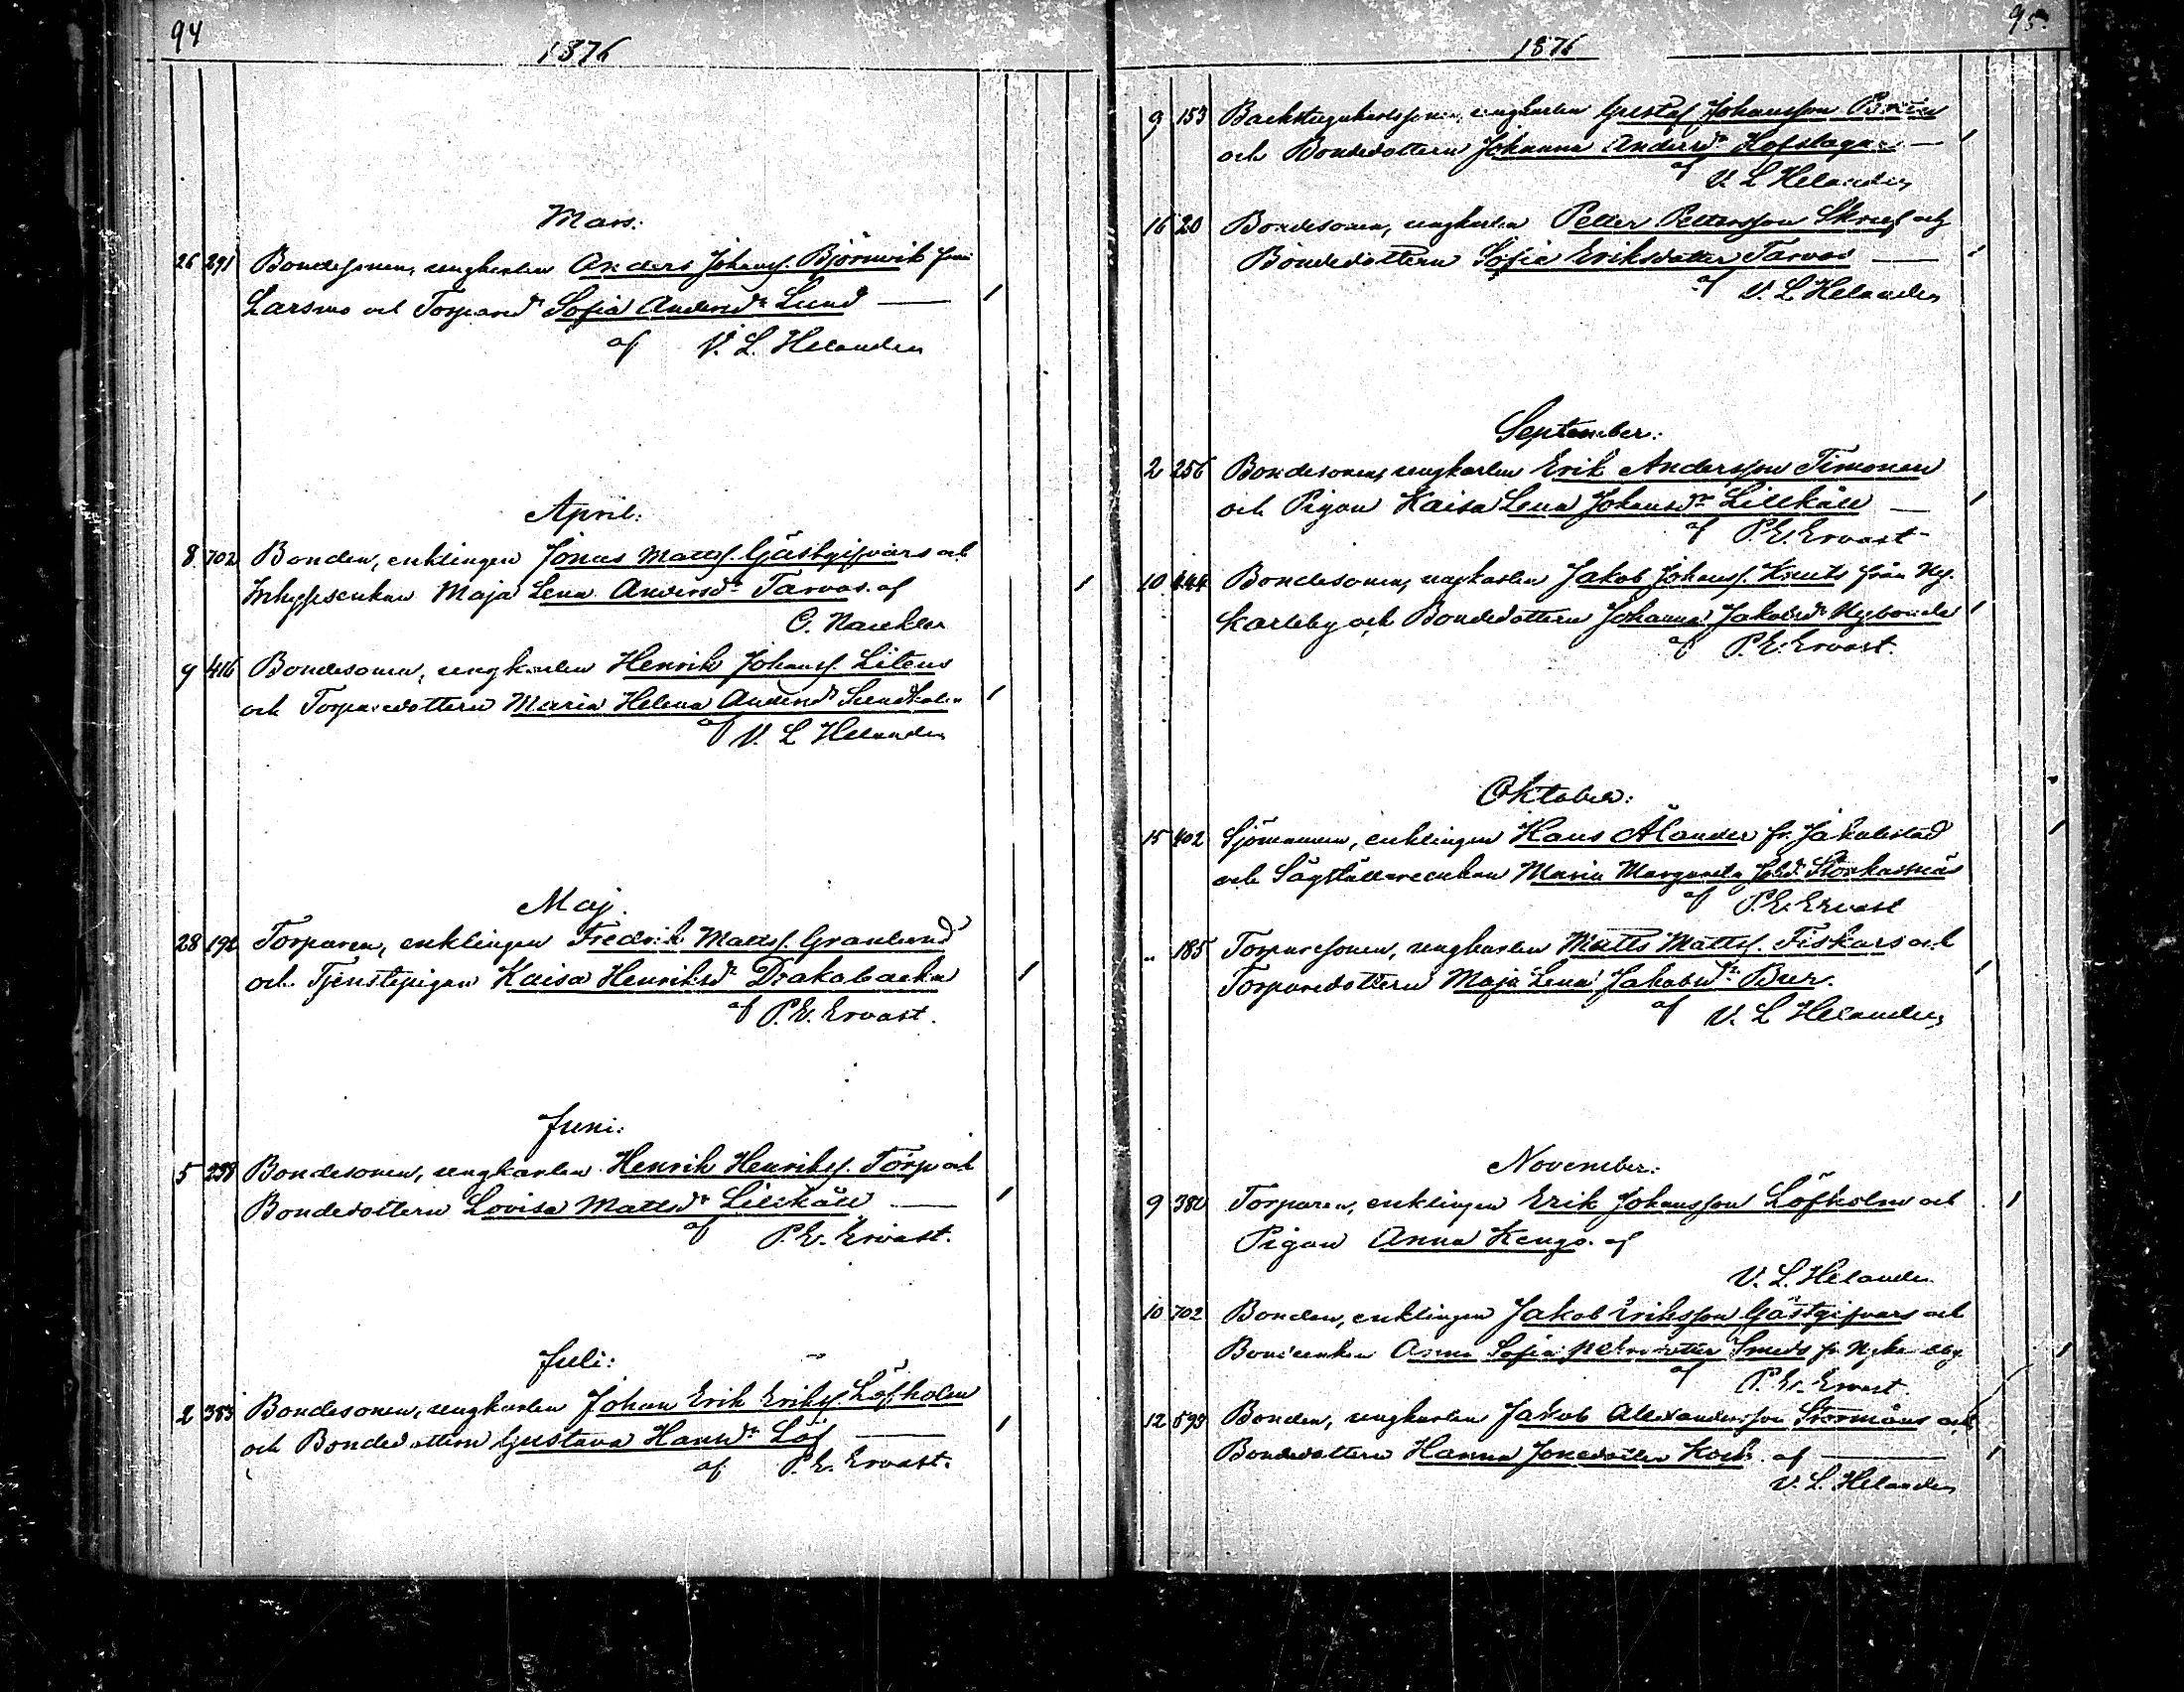 94
1876
Mars:
26 291 Bondesonen, ungkarlen Anders Johanss. Björnvik från
Larsmo och Torpared:r Sofia Andersd:r Lund —
af V. L. Helander
April:
8 702 Bonden, enklingen Jonas Matts. Gästgifvars och
Inhyses enkan Maja Lena Andersd:r Tarvas. af
O. Nauklér
9 416 Bondesonen, ungkarlen Henrik Johanss. Litens
och Torparedottern Maria Helena Andersd:r Sundholm
af V. L. Helander
Maj.
28 192 Torparen, enklingen Fredrik Matts. Granlund
och Tjenstepigan Kaisa Henriksd:r Drakabacka
af P. E. Ervast.
Juni:
5 238 Bondesonen, ungkarlen Henrik Henrikss. Torp och
Bondedottern Lovisa Mattsd:r Lillkåll —
af P. E. Ervast.
Juli:
2 383 Bondesonen, ungkarlen Johan Erik Erikss. Löfholm
och Bondedottern Gustava Hansd:r Löf —
af P. E. Ervast.
95
1876
9 153 Backstugukarlssonen, ungkarlen Gustaf Johansson
och Bondedottern Johanna Andersd:r Hofslagar —
af V. L. Helander
16 20 Bondesonen, ungkarlen Petter Pettersson Skruf och
Bondedottern Sofia Eriksdotter Tarvas —
af V. L. Helander
September:
2 256 Bondesonen, ungkarlen Erik Andersson Timonen
och Pigan Kaisa Lena Johansd:r Lillkåll —
af P. E. Ervast
10 444 Bondesonen, ungkarlen Jakob Johanss. Knuts från Ny-
karleby och Bondedottern Johanna Jakobsd:r Nybonde
af P. E. Ervast.
Oktober:
15 402 Sjömannen, enklingen Hans Ålander fr. Jakobstad
och Sågställareenkan Maria Margareta Storkasnäs
af P. E. Ervast
" 185 Torparesonen, ungkarlen Matts Matts. Fiskars och
Torparedottern Maja Lena Jakobsd:r Bur.
af V. L. Helander
November:
9 380 Torparen, enklingen Erik Johansson Löfholm och
Pigan Anna Kengo. af
V. L. Helander
10 702 Bonden, enklingen Jakob Eriksson Gästgifvars och
Bondeenkan Anna Sofia Smeds fr Nykarleby
af P. E. Ervast.
12 593 Bonden, ungkarlen Jakob Alexandersson Stormåns och
Bondedottern Hanna Jonedotter Kock. af —
V. L. Helander